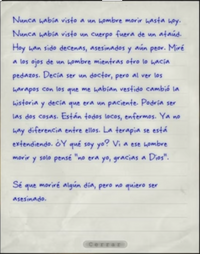 Nunca había visto a un hombre morir hasta hoy.
Nunca había visto un cuerpo fuera de un ataúd.
Hoy han sido decenas, asesinados y aún peor. Miré
a los ojos de un hombre mientras otro lo hacía
pedazos. Decía ser un doctor, pero al ver los
harapos con los que me habían vestido cambió la
historia y decía que era un paciente. Podría ser
las dos cosas. Están todos locos, enfermos. Ya no
hay diferencia entre ellos. La terapia se está
extendiendo. ¿Y qué soy yo? Vi a ese hombre
morir y solo pensé "no era yo, gracias a Dios".
Sé que moriré algún día, pero no quiero ser
asesinado.
Cerrar